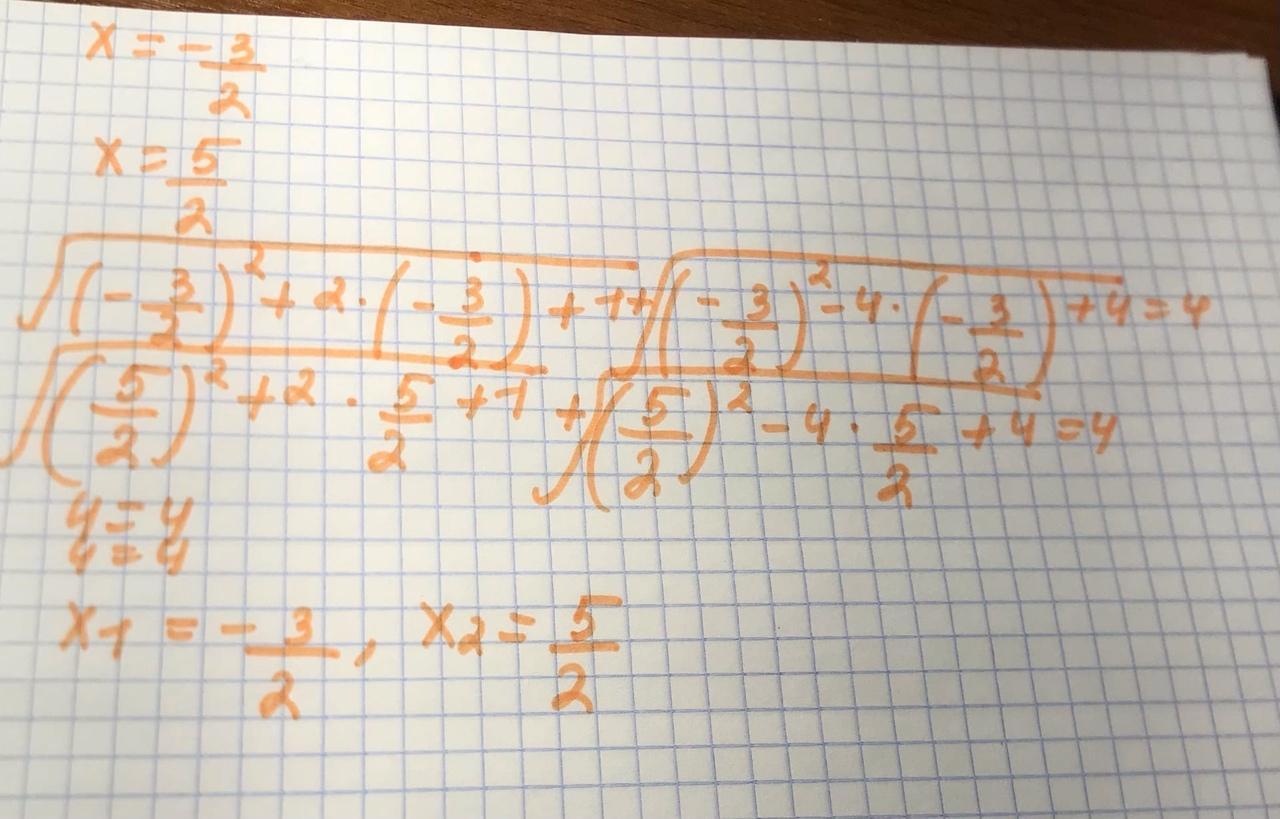 x = -3/2
x = 5/2
√((-3/2)² + 2·(-3/2) + 1) + √((-3/2)² - 4·(-3/2) + 4) = 4
√((5/2)² + 2·5/2 + 1) + √((5/2)² - 4·5/2 + 4) = 4
4 = 4
4 = 4
x₁ = -3/2, x₂ = 5/2